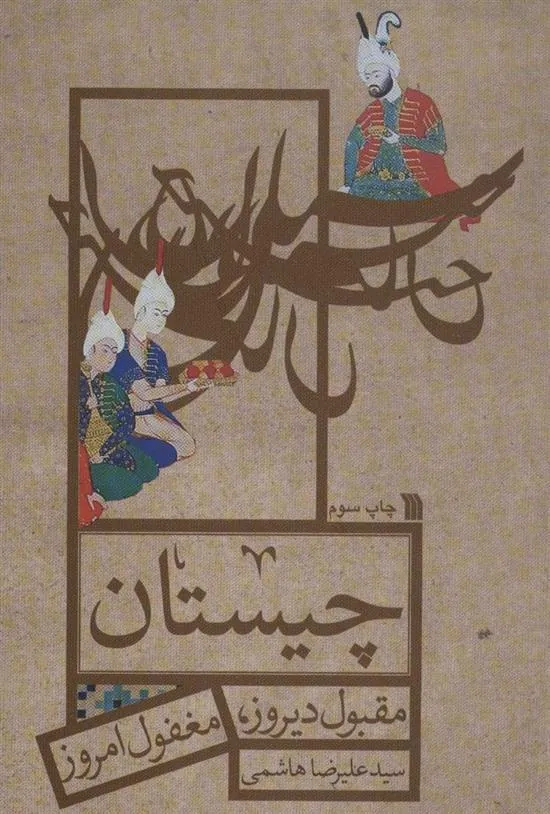 چاپ سوم
چیستان
مقبول دیروز،
مغفول امروز
سید علیرضا هاشمی